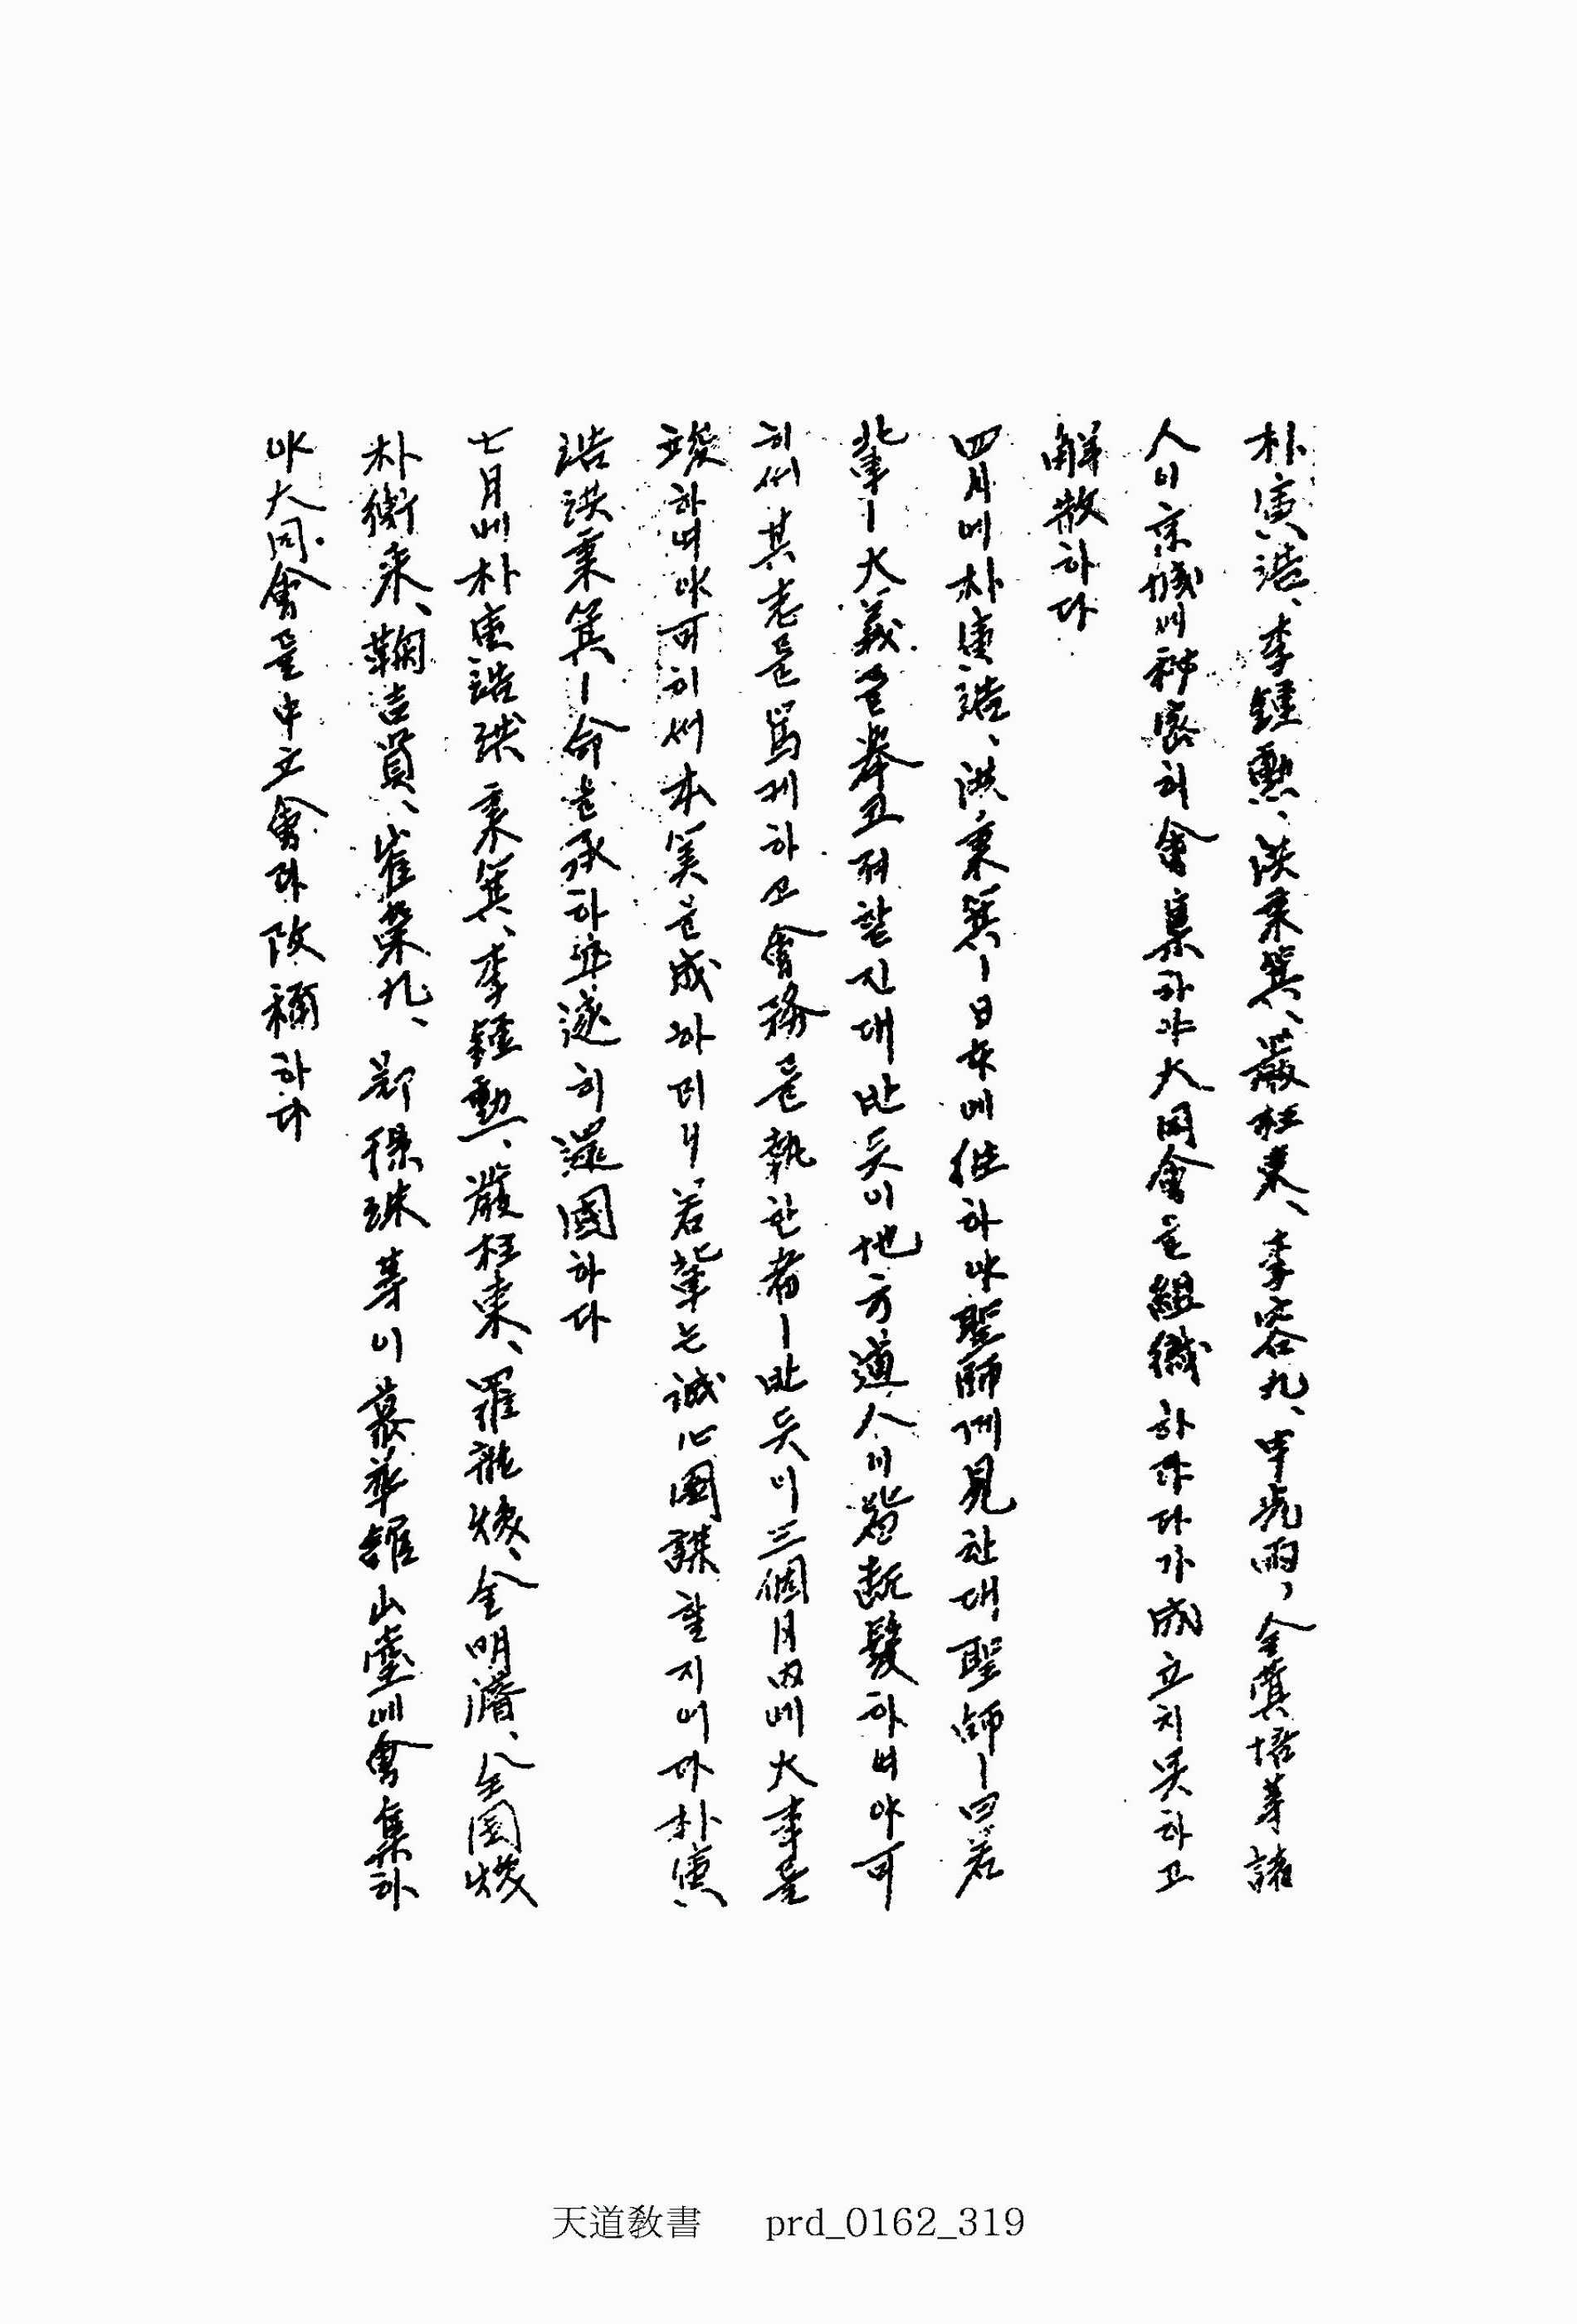 朴寅浩、李鍾勳、洪秉箕、嚴柱東、李容九、申光雨、全蓂培等諸
人이京城에秘密히會集하야大同會을組織하얏다가成立치못하고
解散하다
四月에朴寅浩、洪秉箕ㅣ日本에往하야聖師께見한대聖師ㅣ曰若
輩ㅣ大義를擧코져할진대반듯이地方道人이皆斷髮하여야可
히써其志를篤케하고會務를執한者ㅣ반듯이三個月內에大事를
竣하여야可히써本美을成하리니若輩는誠心圖謀할지어다朴寅
浩洪秉箕ㅣ命을承하와遂히還國하다
七月에朴寅浩洪秉箕、李鍾勳、嚴柱東、羅龍煥、金明濬、全國煥
朴衡采、鞠吉賢、崔榮九、鄭徑洙等이慕華舘山臺에會集하
야大同會를中立會라改稱하다
天道敎書 prd_0162_319